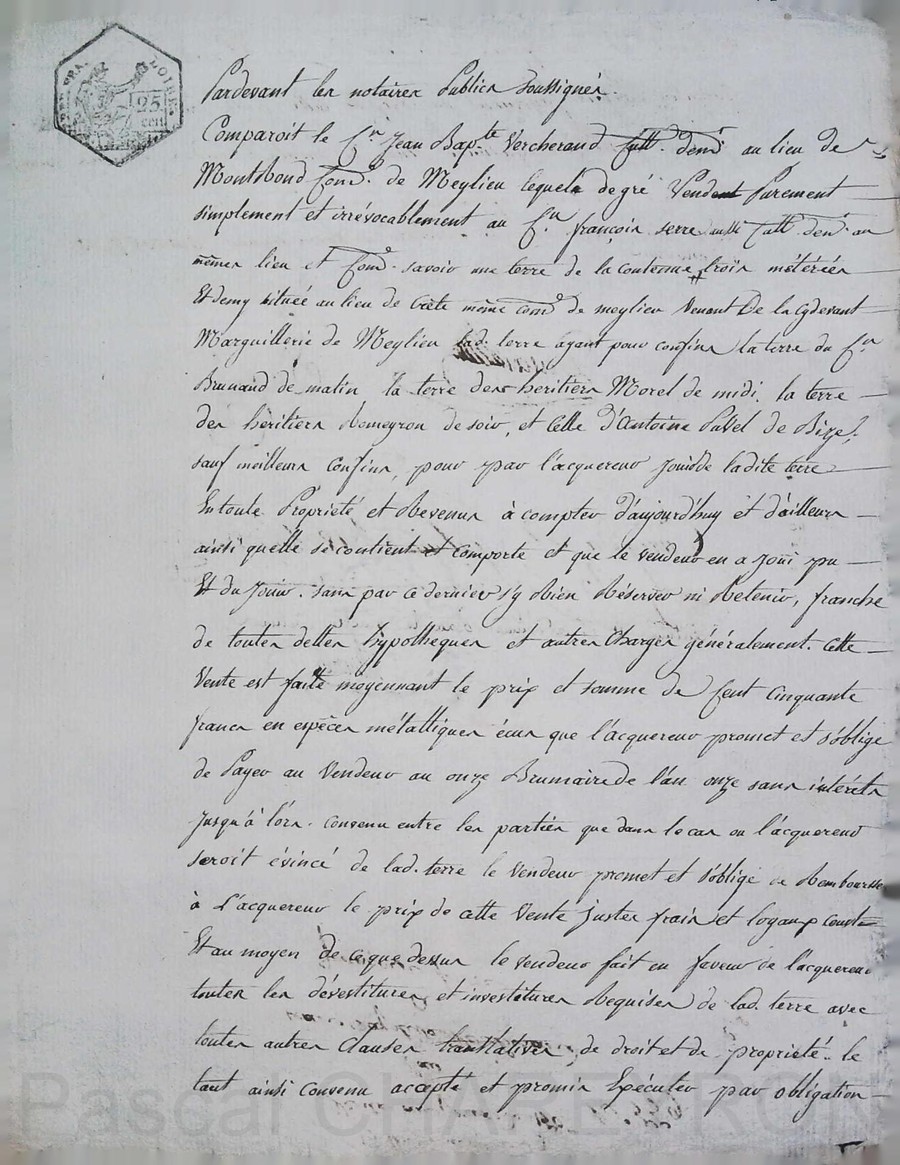 25
cen
Pardevant les notaires Publics soussignés.
Comparoit le Sr. Jean Bapte Vercherand Cultr. demt. au lieu de
Montsbond Come. de Meylieu lequel de gré Vend Purement
simplement et irrévocablement au Sr. françois serre aussi Cultr. demt. au
mêmes lieu et Come. savoir une terre de la contenue trois métérées
Et demy située au lieu de Crête même Come de meylieu Venant De la Cydevant
Marguillerie de Meylieu lad. terre ayant pour confins la terre du Sr
Brunand de matin la terre des heritiers Morel de midi, la terre
des héritiers Romeyron de soir, et Celle d'Antoine Pavel de Bize,
sauf meilleurs Confins, pour par l'acquereur Jouir de ladite terre
En toute Propriété et Revenus à compter d'aujourd'huy et d'ailleurs
ainsi quelle se contient et comporte et que le vendeur en a joüi pu
Et du Jouir. sans par ce dernier s'y Rien Réserver ni Retenir, franche
de toutes dettes hypotheques et autres Charges généralement. Cette
Vente est faite moyennant le prix et somme de Cent Cinquante
francs en espèces métalliques écus que l'acquereur promet et s'oblige
de Payer au Vendeur au onze Brumaire de l'an onze sans intérêts
Jusqu'à lors. convenu entre les parties que dans le cas ou l'acquereur
seroit évincé de lad. terre le Vendeur promet et s'oblige de Rembourser
à L'acquereur le prix de cette Vente justes frais et loyaux couts
Et au moyen de ce que dessus le vendeur fait en faveur de l'acquereur
toutes les dévestitures et investitures Requises de lad. terre avec
toutes autres Clauses translatives de droit et de propriété.. le
tout ainsi Convenu accepté et promis Exécuter par obligation
Pascal